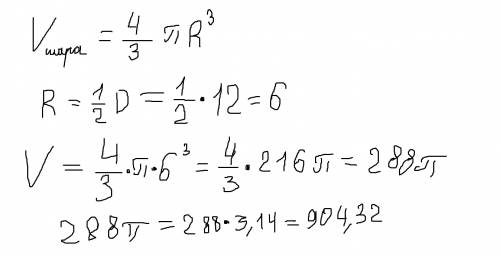 V шара = 4/3 π R³
R = 1/2 D = 1/2 · 12 = 6
V = 4/3 · π · 6³ = 4/3 · 216 π = 288 π
288 π = 288 · 3,14 = 904,32